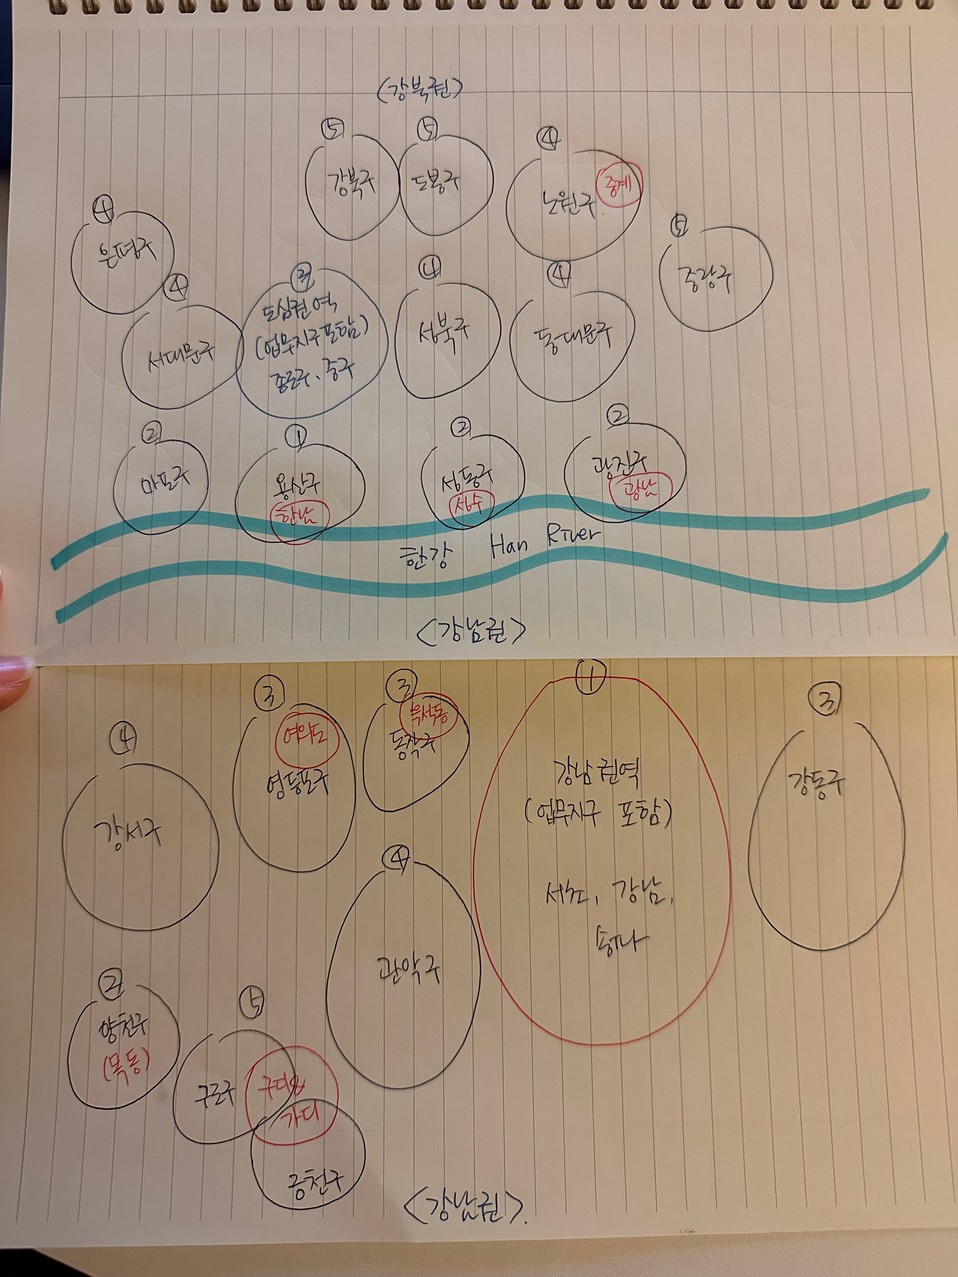 <강북권>
⑤
강북구
⑤
도봉구
④
노원구
중계
④
은평구
④
서대문구
도심권역
(업무지구 포함)
종로구, 중구
④
성북구
④
동대문구
⑤
중랑구
②
마포구
①
용산구
한남
②
성동구
성수
②
광진구
광남
한강 Han River
<강남권>
④
강서구
③
여의도
영등포구
③
흑석동
동작구
①
강남권역
(업무지구 포함)
서초, 강남,
송파
③
강동구
④
관악구
②
양천구
(목동)
⑤
구로구
구디
가디
금천구
<강남권>.